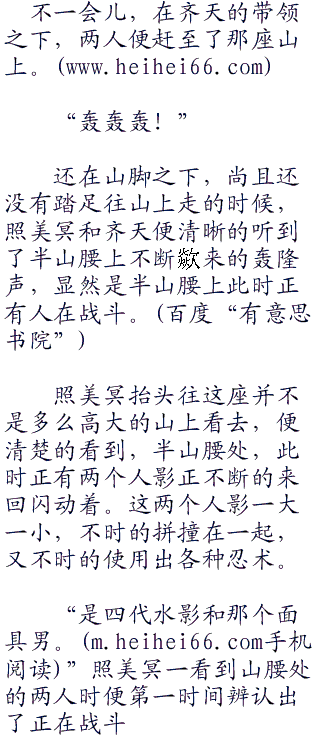 不一会儿，在齐天的带领
之下，两人便赶至了那座山
上。(www.heihei66.com)
“轰轰轰！”
还在山脚之下，尚且还
没有踏足往山上走的时候，
照美冥和齐天便清晰的听到
了半山腰上不断歘来的轰隆
声，显然是半山腰上此时正
有人在战斗。(百度“有意思
书院”)
照美冥抬头往这座并不
是多么高大的山上看去，便
清楚的看到，半山腰处，此
时正有两个人影正不断的来
回闪动着。这两个人影一大
一小，不时的拼撞在一起，
又不时的使用出各种忍术。
“是四代水影和那个面
具男。(m.heihei66.com手机
阅读)”照美冥一看到山腰处
的两人时便第一时间辨认出
了正在战斗